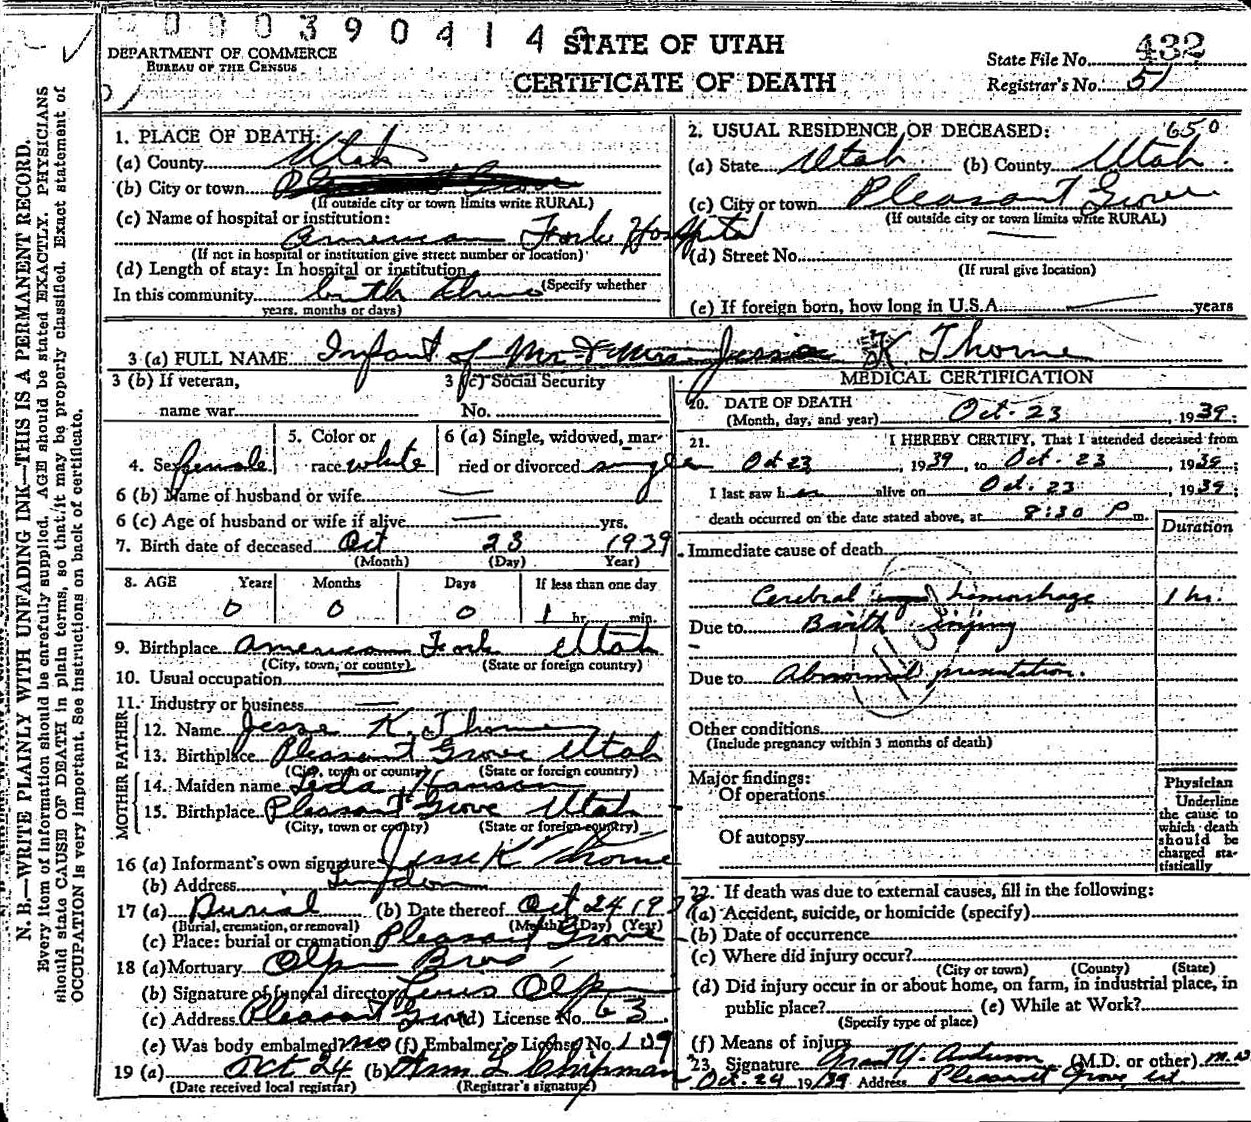 0 0 0 3 9 0 4 1 4
STATE OF UTAH
CERTIFICATE OF DEATH
DEPARTMENT OF COMMERCE
BUREAU OF THE CENSUS
State File No. 432
Registrar's No. 51
N. B.—WRITE PLAINLY WITH UNFADING INK—THIS IS A PERMANENT RECORD.
Every item of information should be carefully supplied. AGE should be stated EXACTLY. PHYSICIANS
should state CAUSE OF DEATH in plain terms, so that it may be properly classified. Exact statement of
OCCUPATION is very important. See instructions on back of certificate.
1. PLACE OF DEATH:
(a) County Utah
(b) City or town Pleasant Grove
(If outside city or town limits write RURAL)
(c) Name of hospital or institution:
American Fork Hospital
(If not in hospital or institution give street number or location)
(d) Length of stay: In hospital or institution
(Specify whether
In this community
years, months or days)
2. USUAL RESIDENCE OF DECEASED: 650
(a) State Utah (b) County Utah
(c) City or town Pleasant Grove
(If outside city or town limits write RURAL)
(d) Street No.
(If rural give location)
(e) If foreign born, how long in U.S.A. years
3 (a) FULL NAME Infant of Mr & Mrs Jessie K Thorne
3 (b) If veteran,
name war
3 (c) Social Security
No.
4. Sex female
5. Color or
race white
6 (a) Single, widowed, mar-
ried or divorced single
6 (b) Name of husband or wife
6 (c) Age of husband or wife if alive yrs.
7. Birth date of deceased Oct 23 1939
(Month) (Day) (Year)
8. AGE Years Months Days If less than one day
0 0 0 1 hr. min.
9. Birthplace American Fork Utah
(City, town, or county) (State or foreign country)
10. Usual occupation
11. Industry or business
FATHER
12. Name Jesse K. Thorne
13. Birthplace Pleasant Grove Utah
(City, town or county) (State or foreign country)
MOTHER
14. Maiden name Leda Hanson
15. Birthplace Pleasant Grove Utah
(City, town or county) (State or foreign country)
16 (a) Informant's own signature Jesse K Thorne
(b) Address Lindon
17 (a) Burial (b) Date thereof Oct 24 1939
(Burial, cremation, or removal) (Month) (Day) (Year)
(c) Place: burial or cremation Pleasant Grove
18 (a) Mortuary Olpin Bros
(b) Signature of funeral director Olpin
(c) Address Pleasant Grove (d) License No. 63
(e) Was body embalmed? no (f) Embalmer's License No. 109
19 (a) Oct 24 (b) Chipman
(Date received local registrar) (Registrar's signature)
MEDICAL CERTIFICATION
20. DATE OF DEATH
(Month, day, and year) Oct. 23, 1939;
21. I HEREBY CERTIFY, That I attended deceased from
Oct 23, 1939, to Oct. 23, 1939;
I last saw her alive on Oct. 23, 1939;
death occurred on the date stated above, at 8:30 P m.
Duration
Immediate cause of death
Cerebral hemorrhage 1 hr.
Due to Birth injury
Due to Abnormal presentation.
Other conditions
(Include pregnancy within 3 months of death)
Major findings:
Of operations
Of autopsy
Physician
Underline
the cause to
which death
should be
charged sta-
tistically
22. If death was due to external causes, fill in the following:
(a) Accident, suicide, or homicide (specify)
(b) Date of occurrence
(c) Where did injury occur?
(City or town) (County) (State)
(d) Did injury occur in or about home, on farm, in industrial place, in
public place? (e) While at Work?
(Specify type of place)
(f) Means of injury
23. Signature Grant Y. Anderson (M.D. or other) M.D.
Oct. 24 1939 Address Pleasant Grove, Ut.